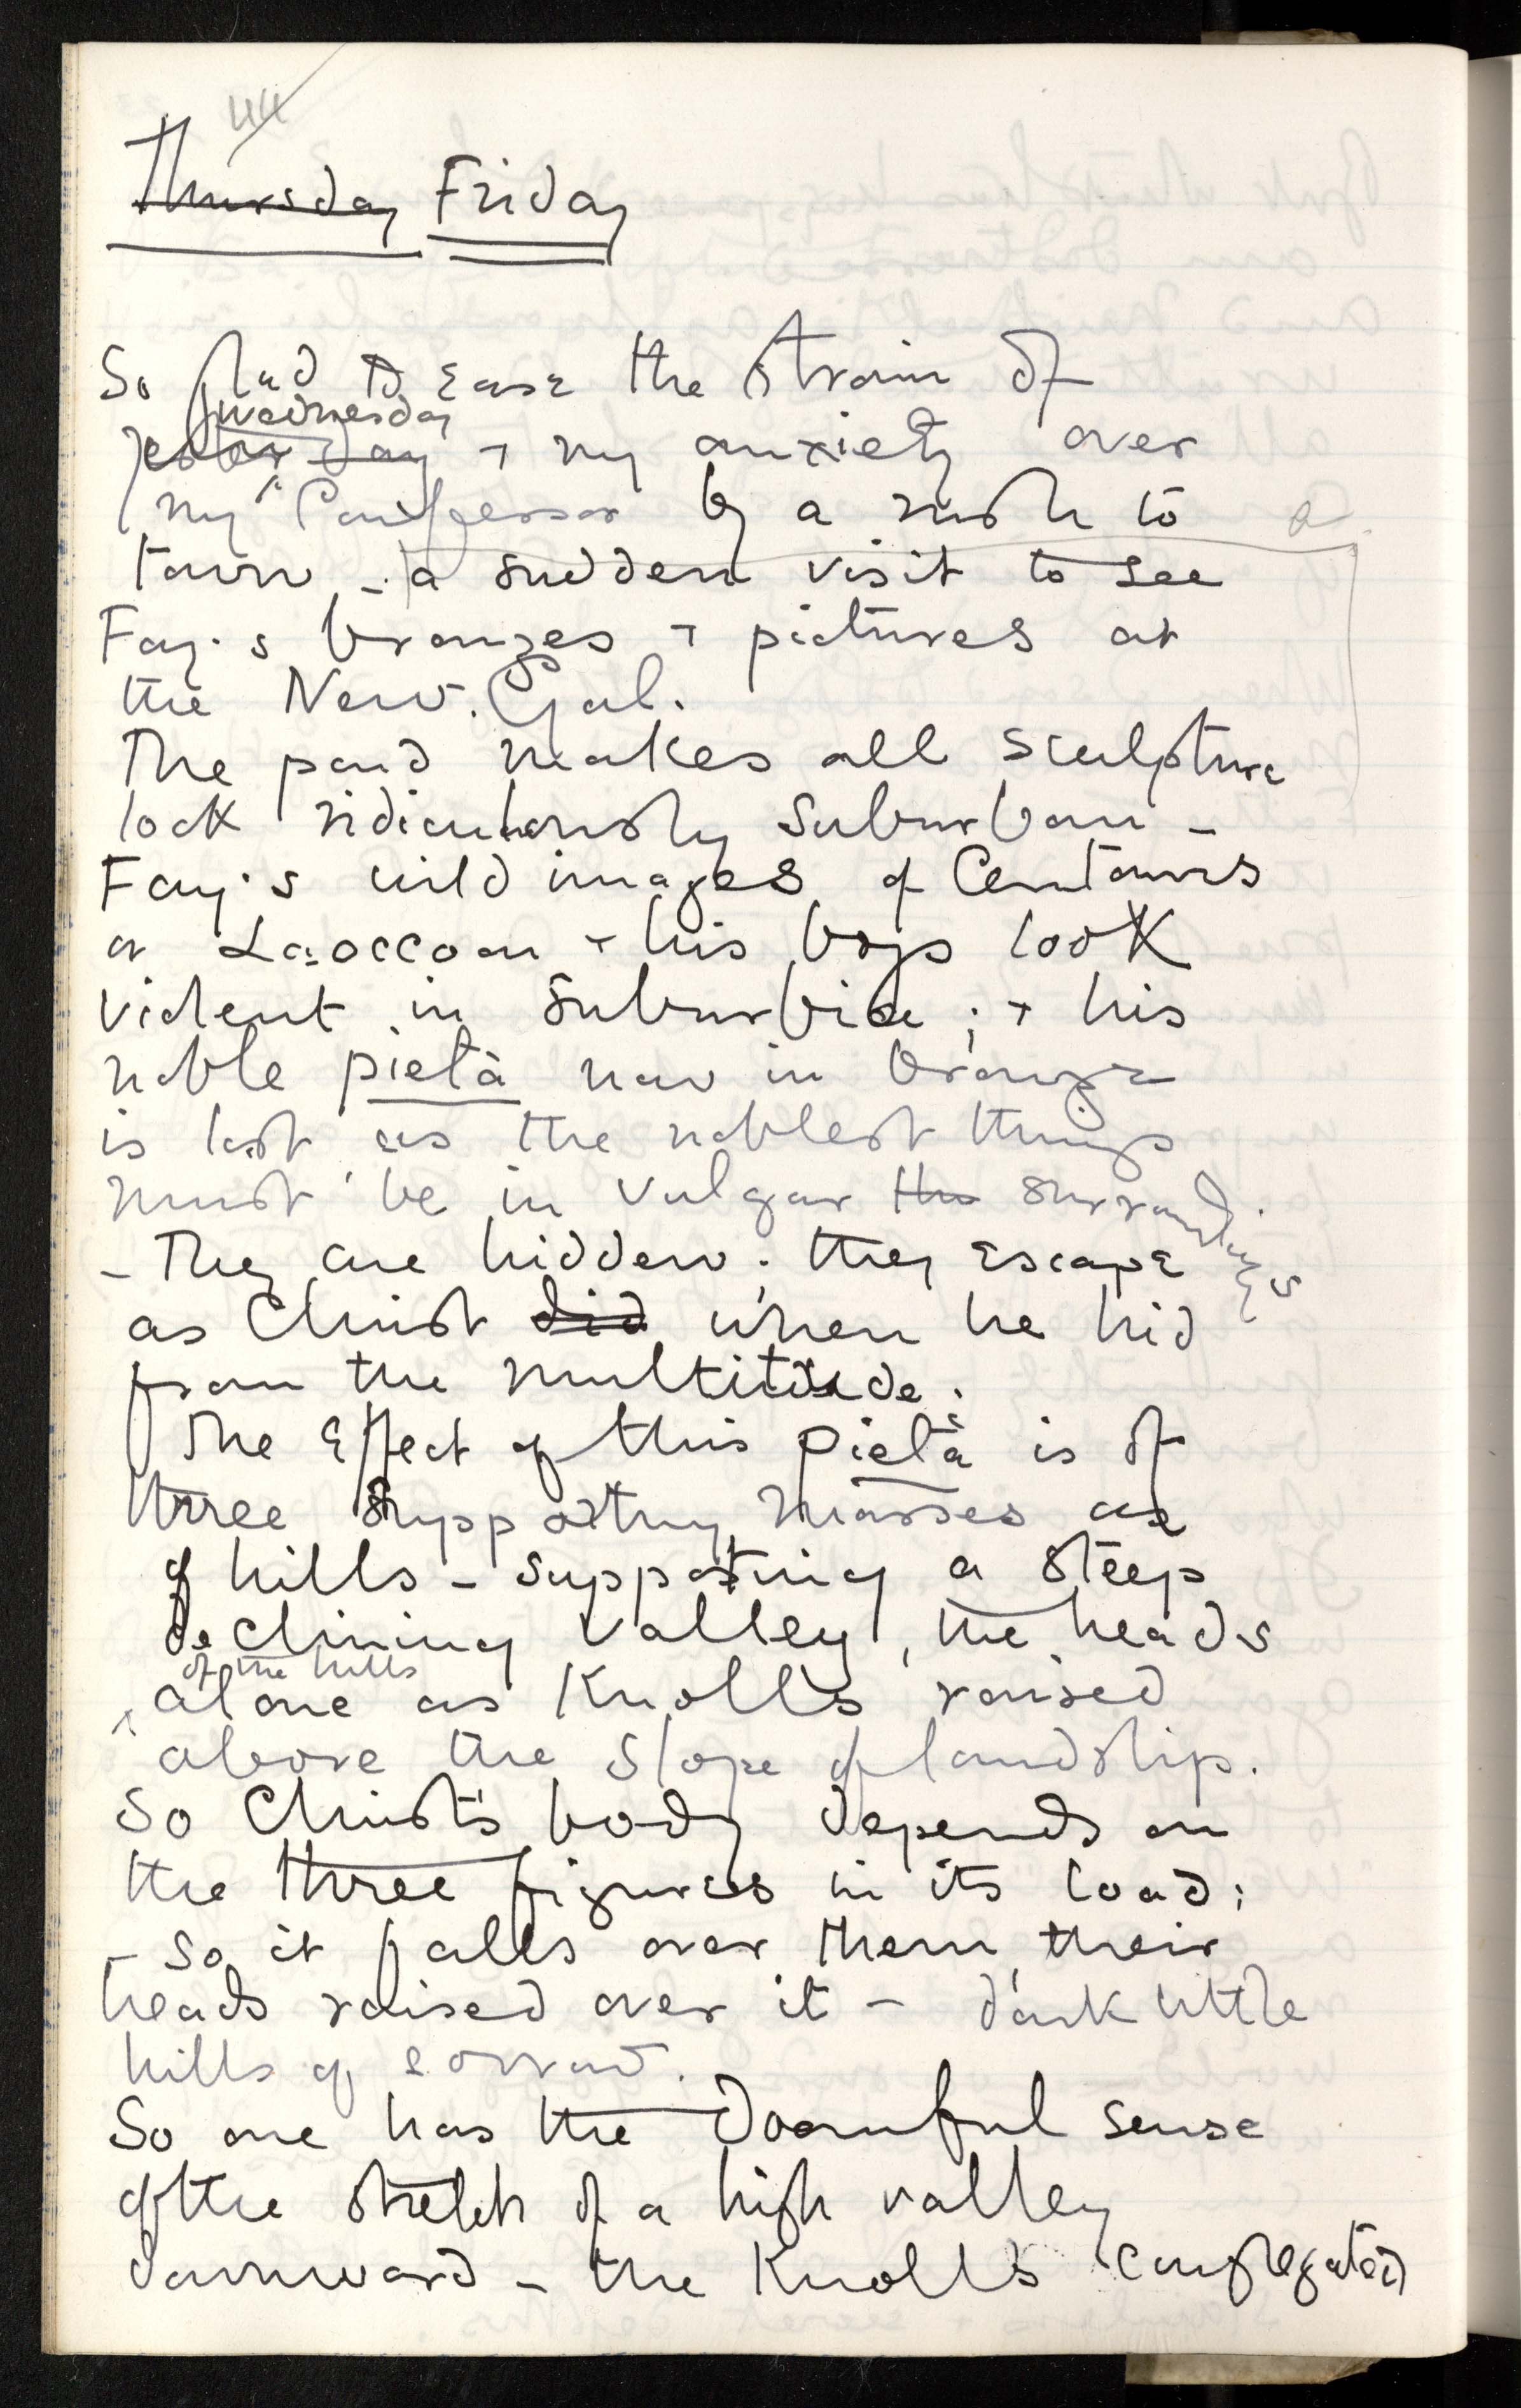 44
Thursday Friday
So glad to ease the strain of
Wednesday
yesterday + my anxiety over
my Confessor by a rush to
town - a sudden visit to see
Fay's bronzes + pictures at
the New. Gal.
The pond makes all sculpture
look ridiculously suburban -
Fay's wild images of Centaurs
or Laoccoon + his boys look
violent in suburbia; + his
noble pietà now in bronze
is lost as the noblest things
must be in vulgar the surroundings
- They are hidden; they escape
as Christ did when he hid
from the multitude.
The Effect of this pietà is of
three supporting masses as
of hills - supporting a steep
declining valley, the heads
of the hills
alone as Knolls raised
above the slope of landslip.
So Christ's body depends on
the three figures in its load;
- So it falls over them, their
heads raised over it - dark little
hills of sorrow.
So one has the doomful sense
of the stretch of a high valley
downward - the Knolls congregated